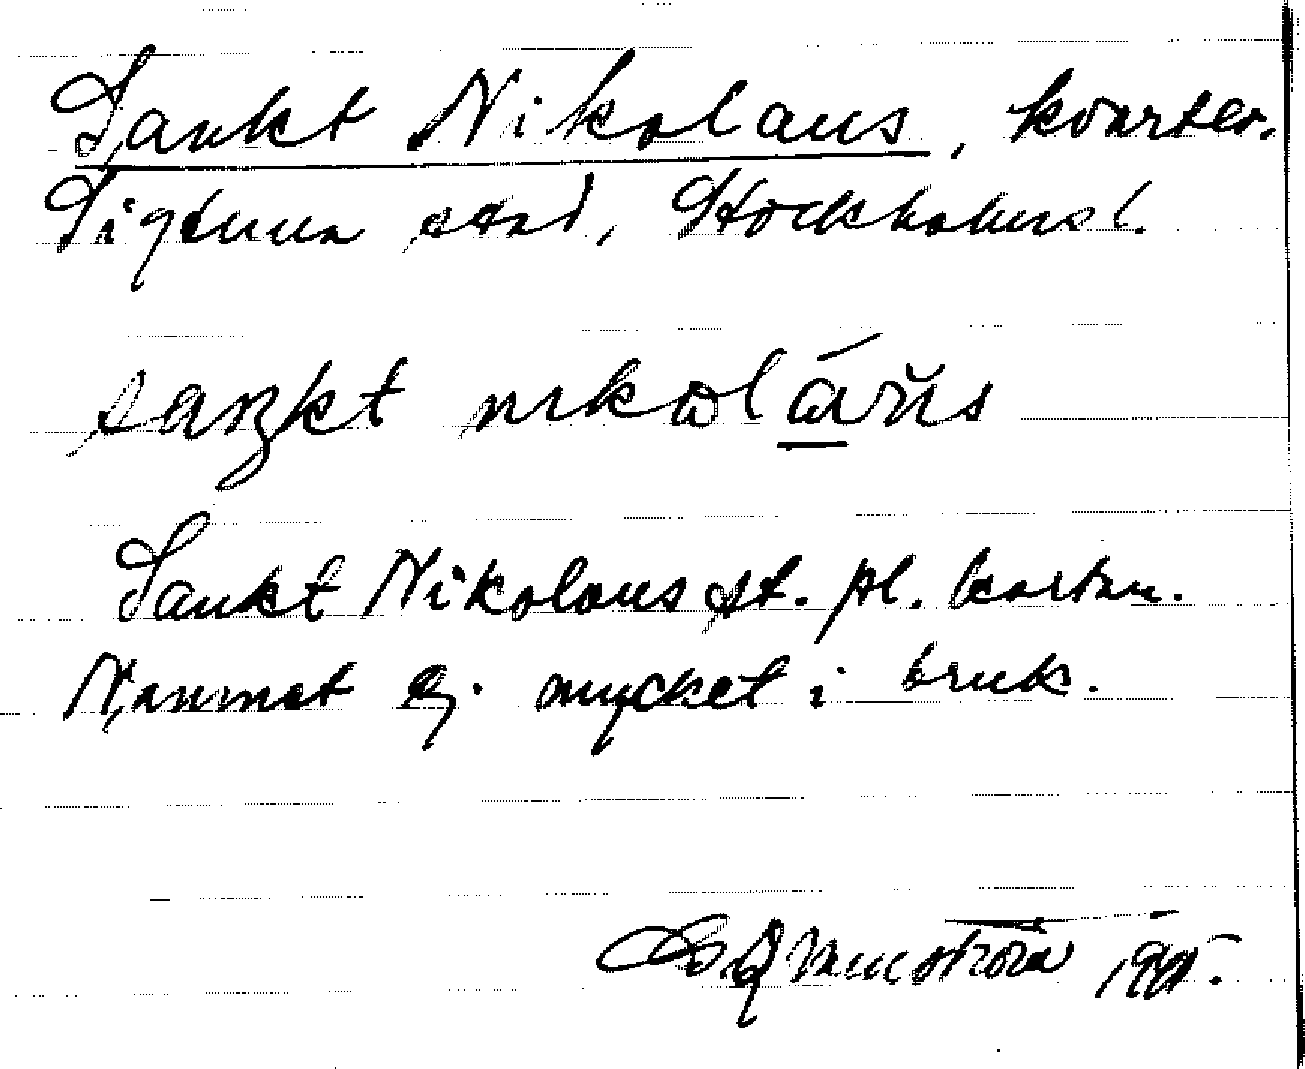 Sankt Nikolaus, kvarter.
Sigtuna stad, Stockholmsl.
saŋkt nikoláŭs
Sankt Nikolaus st. pl. kartan.
Namnet ej mycket i bruk.